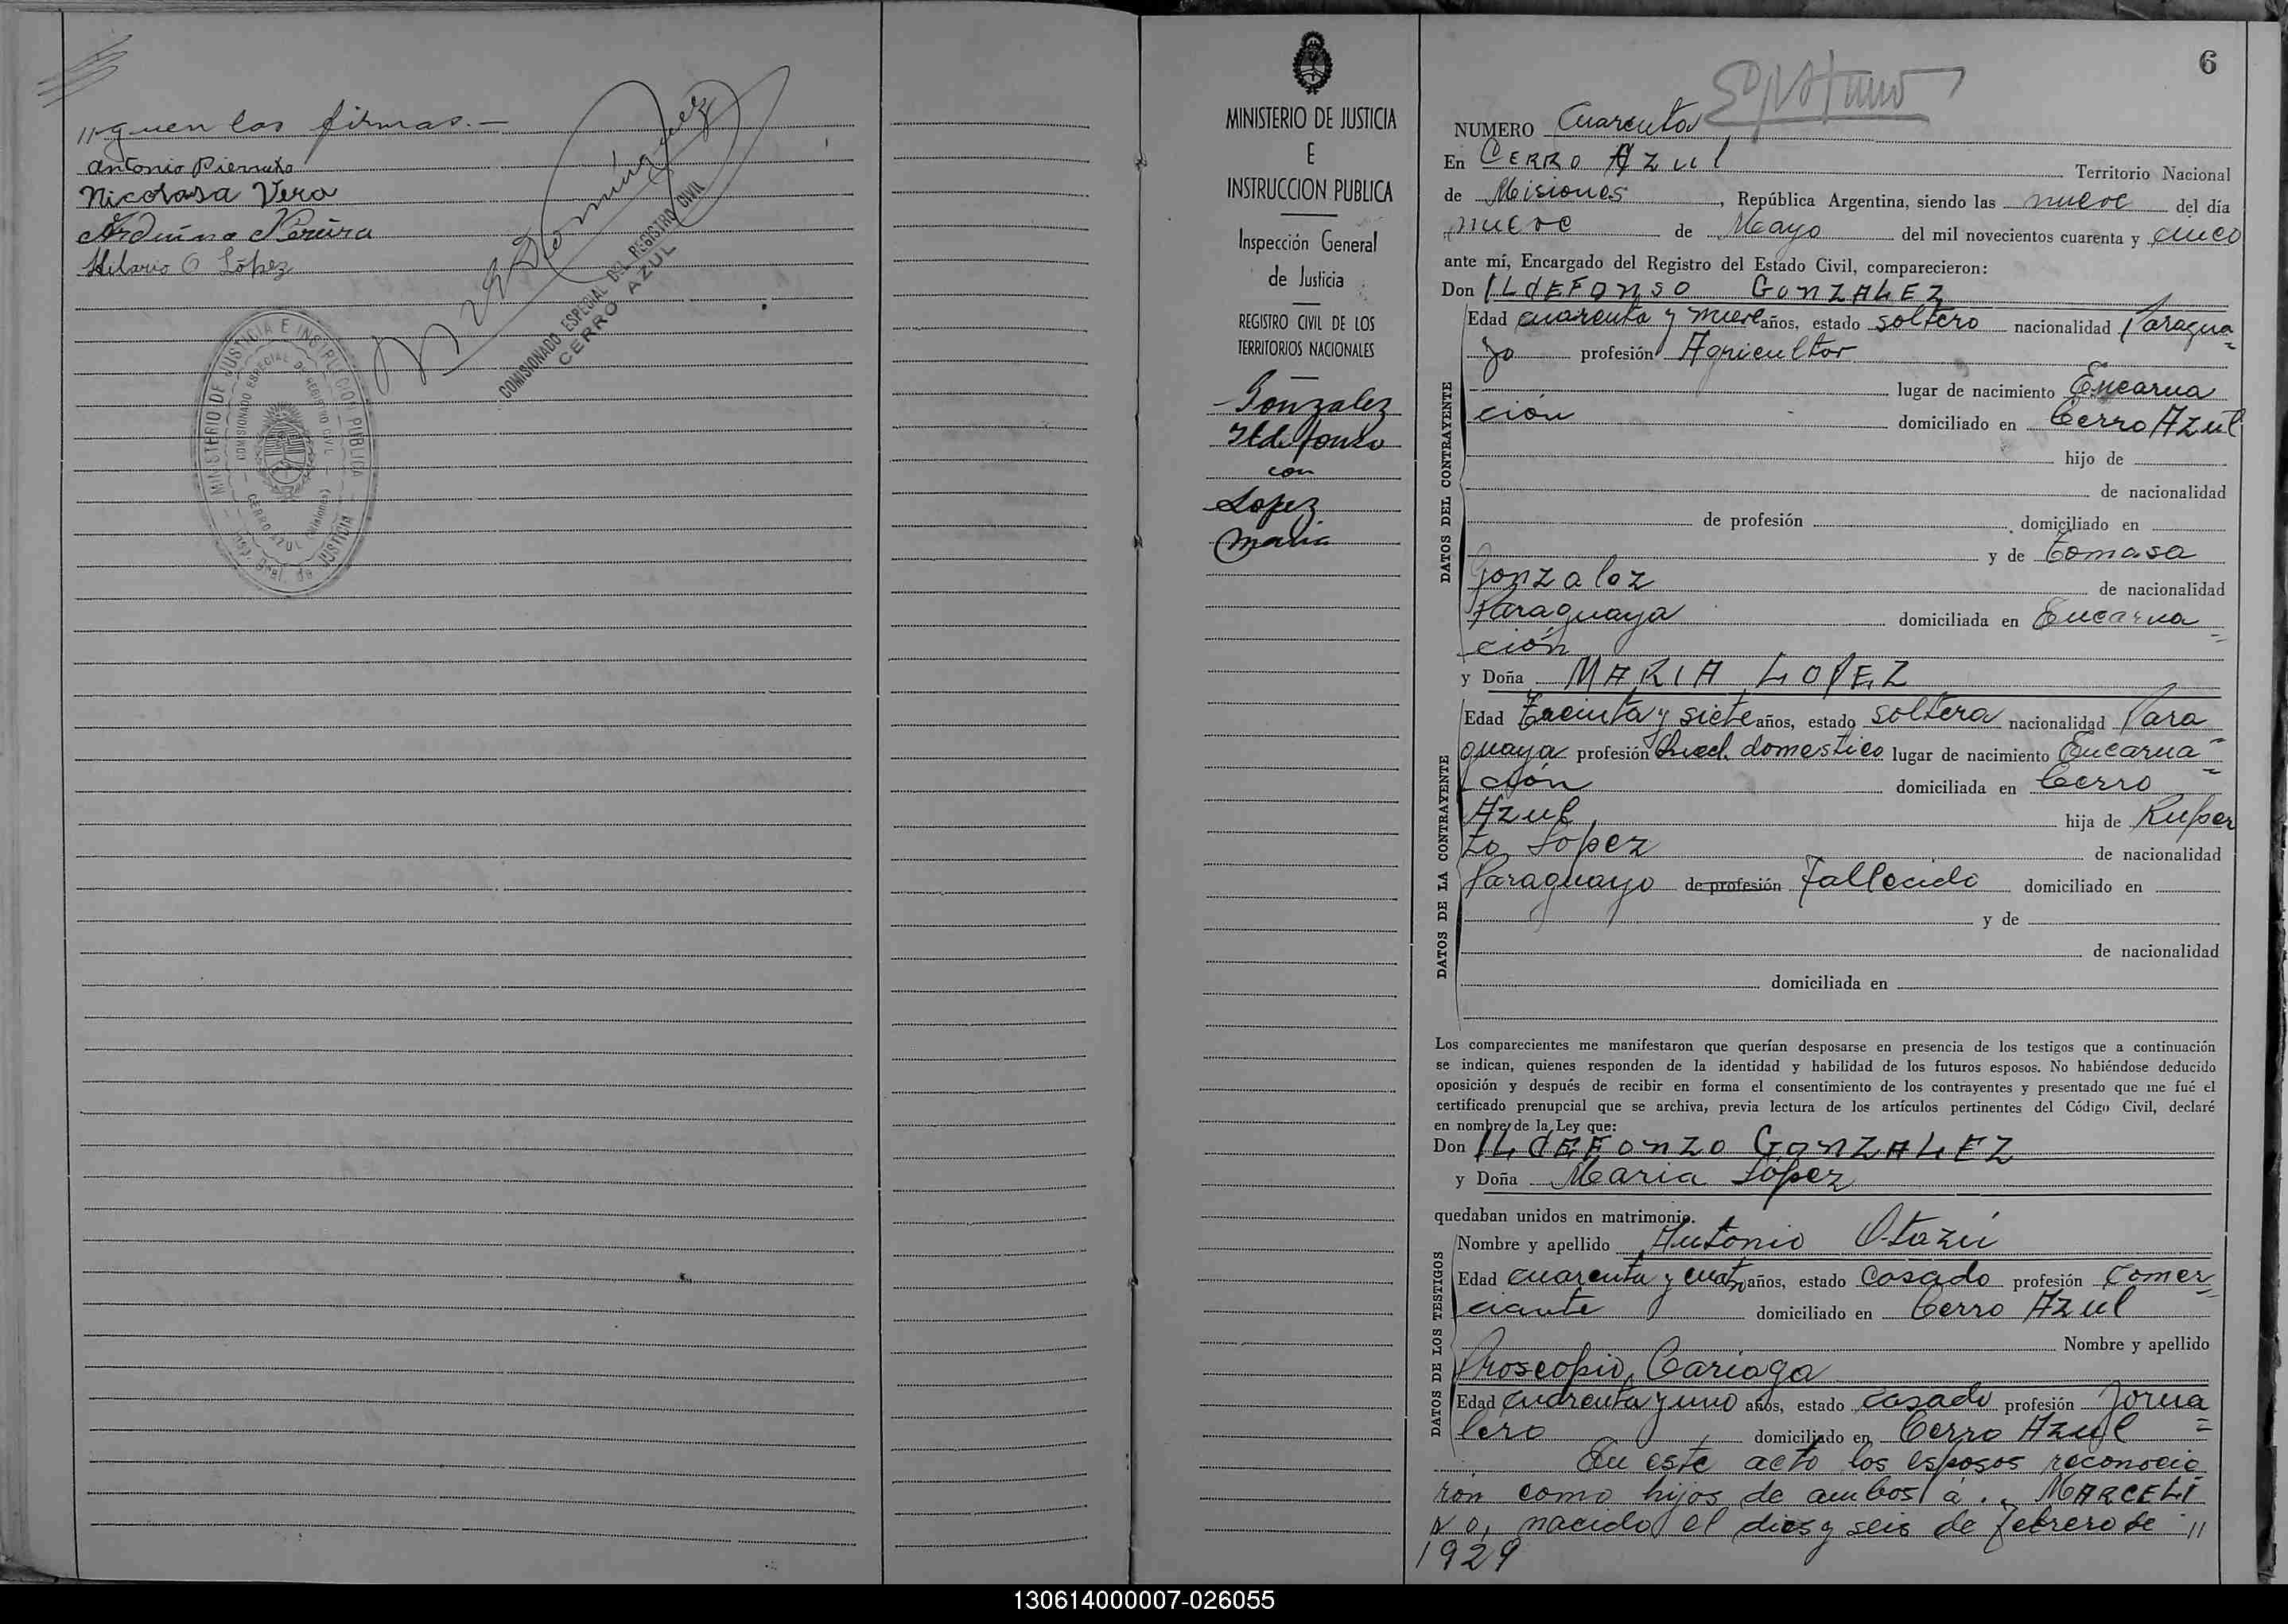 //guen las firmas.-
Antonio
Nicolasa Vera
Arduino Pereira
Hilario O López
COMISIONADO ESPECIAL DEL REGISTRO CIVIL
CERRO AZUL
MINISTERIO DE JUSTICIA E INSTRUCCION PUBLICA
COMISIONADO ESPECIAL DEL REGISTRO CIVIL
CERRO AZUL (Misiones)
Insp. Gral. de JUSTICIA
MINISTERIO DE JUSTICIA
E
INSTRUCCION PUBLICA
Inspección General
de Justicia
REGISTRO CIVIL DE LOS
TERRITORIOS NACIONALES
Gonzalez
Ildefonso
con
Lopez
Maria
6
NUMERO Cuarenta
En CERRO AZUl Territorio Nacional
de Misiones, República Argentina, siendo las nueve del día
nueve de Mayo del mil novecientos cuarenta y cinco
ante mí, Encargado del Registro del Estado Civil, comparecieron:
Don ILdEFONSO GONZALEZ
DATOS DEL CONTRAYENTE
Edad cuarenta y nueve años, estado soltero nacionalidad Paragua=
yo profesión Agricultor
lugar de nacimiento Encarna
ción domiciliado en Cerro Azul
hijo de
de nacionalidad
de profesión domiciliado en
y de Tomasa
Gonzalez de nacionalidad
Paraguaya domiciliada en Encarna=
ción
y Doña MARIA LOPEZ
DATOS DE LA CONTRAYENTE
Edad Treinta y siete años, estado soltera nacionalidad Para=
guaya profesión Queh. domestico lugar de nacimiento Encarna=
ción domiciliada en Cerro
Azul hija de Ruper
to Lopez de nacionalidad
Paraguayo de profesión Fallecido domiciliado en
y de
de nacionalidad
domiciliada en
Los comparecientes me manifestaron que querían desposarse en presencia de los testigos que a continuación
se indican, quienes responden de la identidad y habilidad de los futuros esposos. No habiéndose deducido
oposición y después de recibir en forma el consentimiento de los contrayentes y presentado que me fué el
certificado prenupcial que se archiva, previa lectura de los artículos pertinentes del Código Civil, declaré
en nombre de la Ley que:
Don ILdEFONZO GONZALEZ
y Doña Maria López
quedaban unidos en matrimonio.
DATOS DE LOS TESTIGOS
Nombre y apellido Antonio Otazú
Edad cuarenta y cuatro años, estado Casado profesión Comer=
ciante domiciliado en Cerro Azul
Nombre y apellido
Proscopio Cariaga
Edad cuarenta y uno años, estado casado profesión Jorna=
lero domiciliado en Cerro Azul
En este acto los esposos reconocie
ron como hijos de ambos a.. MARCELI
NO, nacido el dies y seis de Febrero de //
1929
130614000007-026055